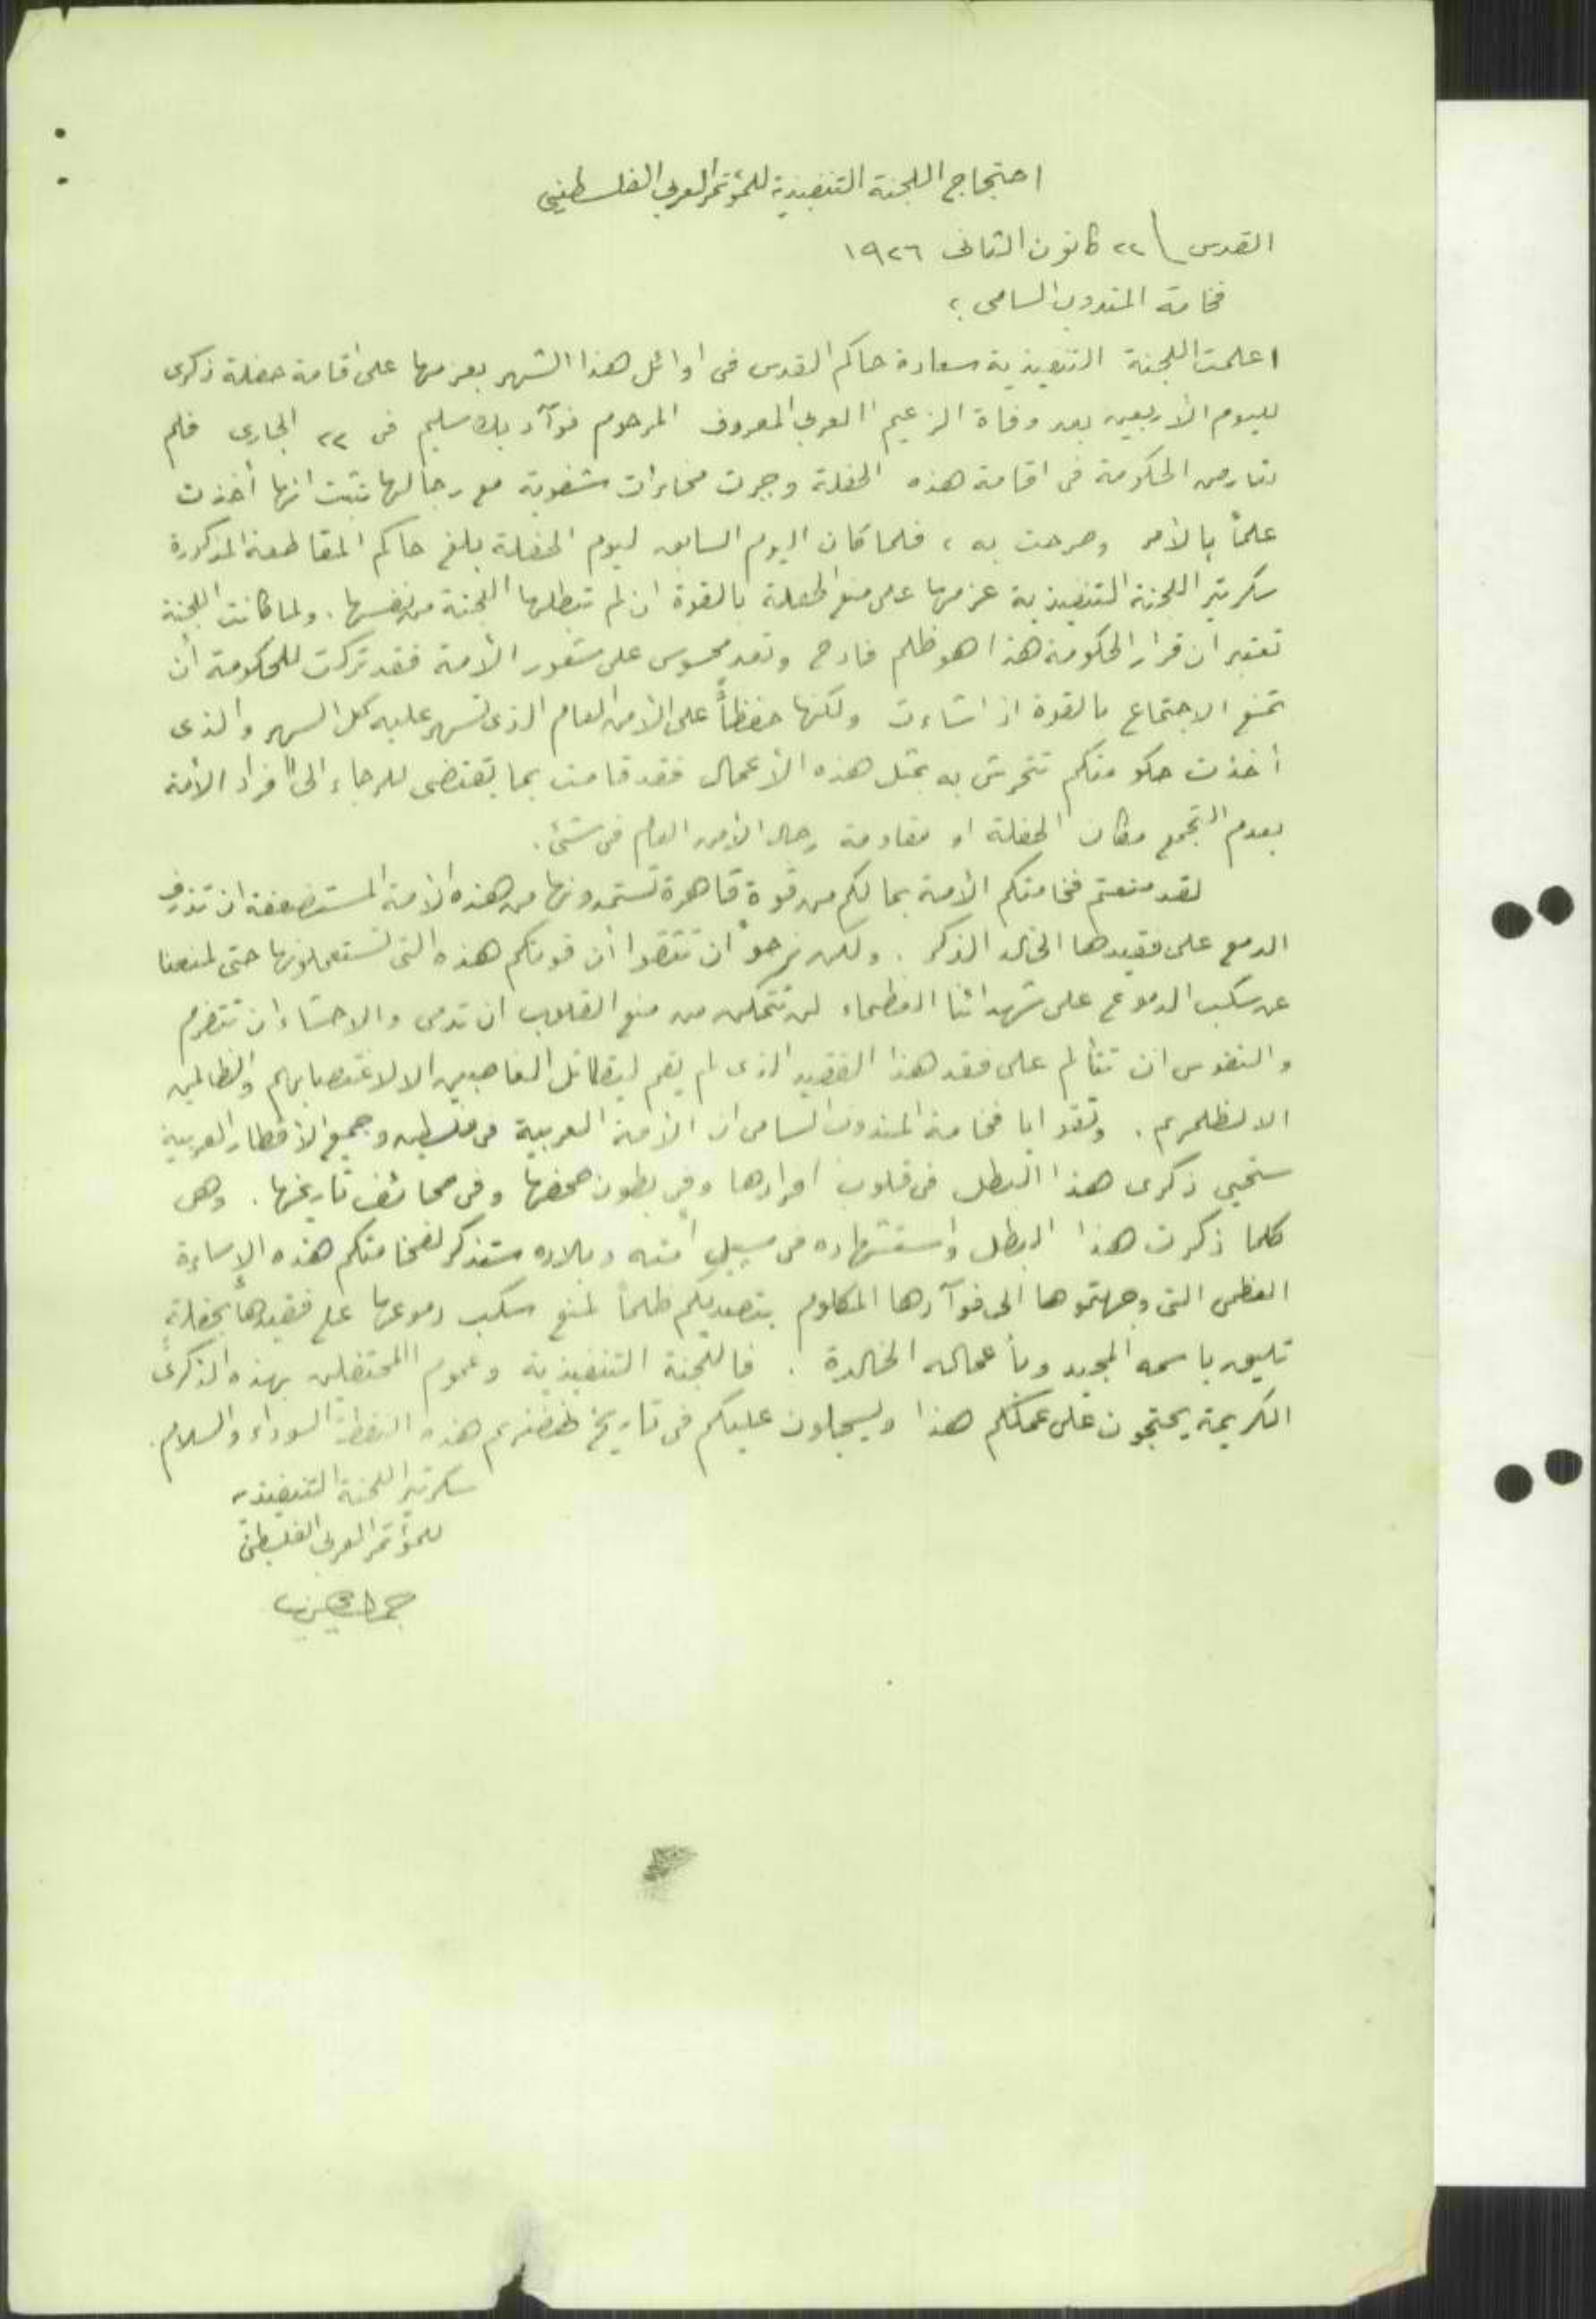 احتجاج اللجنة التنفيذية للمؤتمر العربي الفلسطيني
القدس \ ٢٢ كانون الثانى ١٩٢٦
فخامة المندوب السامى ،
اعلمت اللجنة التنفيذية سعادة حاكم القدس فى اوائل هذا الشهر بعزمها على اقامة حفلة ذكرى
لليوم الأربعين بعد وفاة الزعيم العربى المعروف المرحوم فوآد بك سليم فى ٢٢ الجارى فلم
تعارض الحكومة فى اقامة هذه الحفلة وجرت مخابرات شفوية مع رجالها تثبت انها أخذت
علماً بالأمر وصرحت به ، فلما كان اليوم السابق ليوم الحفلة بلغ حاكم المقاطعة المذكورة
سكرتير اللجنة التنفيذية عزمها على منع الحفلة بالقوة ان لم تبطلها اللجنة من نفسها . ولما كانت اللجنة
تعتبر ان قرار الحكومة هذا هو ظلم فادح وتعد محسوس على شعور الأمة فقد تركت للحكومة أن
تمنع الاجتماع بالقوة اذا شاءت ولكنها حفظاً على الأمن العام الذى تسهر عليه كل السهر والذى
أخذت حكومتكم تتحرش به بمثل هذه الأعمال فقد قامت بما يقتضى للرجاء الى افراد الأمة
بعدم التجمع مكان الحفلة او مقاومة رجال الأمن العام فى شئ .
لقد منعتم فخامتكم الأمة بما لكم من قوة قاهرة تستمدونها من هذه الأمة المستضعفة ان تذرف
الدمع على فقيدها الخالد الذكر . ولكن نرجو ان تثقوا أن قوتكم هذه التى تستعملونها حتى لمنعنا
عن سكب الدموع على شهدائنا العظماء لن تتمكن من منع القلوب ان تدمى والاحشاء ان تتضرم
والنفوس ان تتألم على فقد هذا الفقيد الذى لم يقم ليقاتل الغاصبين الا لاغتصابهم والظالمين
الا لظلمهم . وثقوا يا فخامة المندوب السامى ان الأمة العربية فى فلسطين وجميع الأقطار العربية
ستحيي ذكرى هذا البطل فى قلوب افرادها وفى بطون صحفها وفى صحائف تاريخها . وهى
كلما ذكرت هذا البطل واستشهاده فى سبيل امته وبلاده ستذكر لفخامتكم هذه الإساءة
العظمى التى وجهتموها الى فوآدها المكلوم بتصديكم ظلماً لمنع سكب دموعها على فقيدها بحفلة
تليق باسمه المجيد وبأعماله الخالدة . فاللجنة التنفيذية وعموم المحتفلين بهذه الذكرى
الكريمة يحتجون على عملكم هذا ويسجلون عليكم فى تاريخ هذه النقطة السوداء والسلام .
سكرتير اللجنة التنفيذية
للمؤتمر العربى الفلسطينى
جمال الحسينى